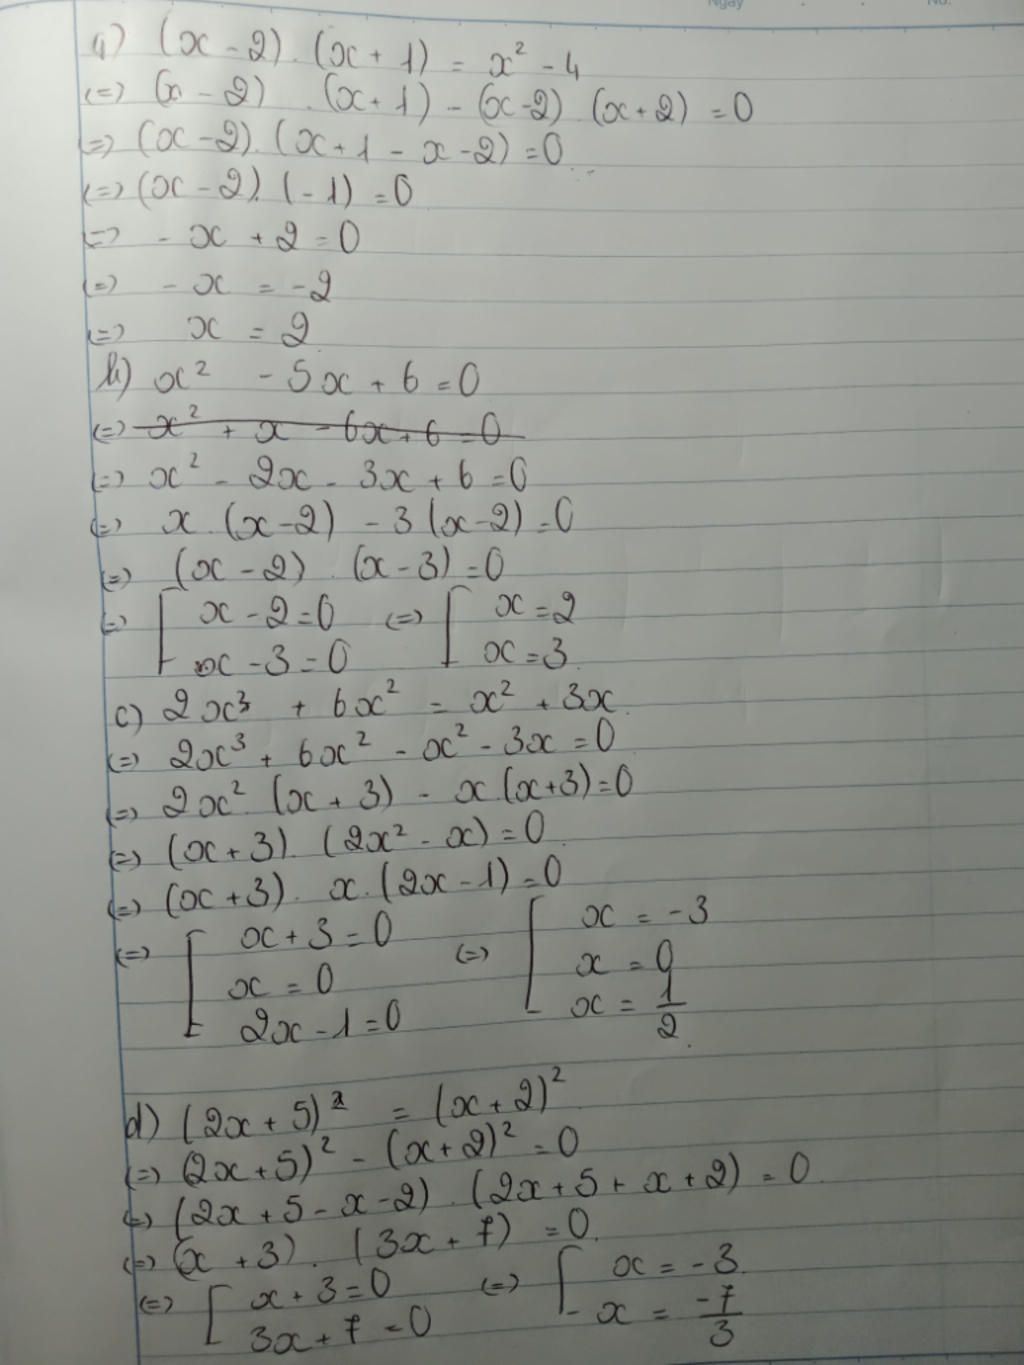 Ngày No.
a) (x - 2) . (x + 1) = x² - 4
(=) (x - 2) . (x + 1) - (x - 2) . (x + 2) = 0
(=) (x - 2) . (x + 1 - x - 2) = 0
(=) (x - 2) . (-1) = 0
(=) - x + 2 = 0
(=) - x = -2
(=) x = 2
b) x² - 5x + 6 = 0
(=) x² + x - 6x + 6 = 0
(=) x² - 2x - 3x + 6 = 0
(=) x . (x - 2) - 3 (x - 2) = 0
(=) (x - 2) . (x - 3) = 0
(=) [ x - 2 = 0 (=) [ x = 2
x - 3 = 0 x = 3
c) 2x³ + 6x² = x² + 3x
(=) 2x³ + 6x² - x² - 3x = 0
(=) 2x² . (x + 3) - x . (x + 3) = 0
(=) (x + 3) . (2x² - x) = 0
(=) (x + 3) . x . (2x - 1) = 0
(=) [ x + 3 = 0 (=) [ x = -3
x = 0 x = 0
2x - 1 = 0 x = 1/2
d) (2x + 5)² = (x + 2)²
(=) (2x + 5)² - (x + 2)² = 0
(=) (2x + 5 - x - 2) . (2x + 5 + x + 2) = 0
(=) (x + 3) . (3x + 7) = 0
(=) [ x + 3 = 0 (=) [ x = -3
3x + 7 = 0 x = -7/3